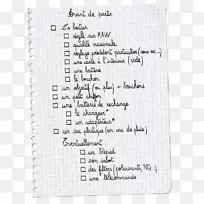 Avant de partir
Le boîtier
réglé sur RAW
qualité maximale
réglages précédent particuliers (sous-ex...)
une carte à l'intérieur (vide)
une batterie
le bouchon
un objectif (ou plus) + bouchons
un petit chiffon
une batterie de rechange
le chargeur*
un adaptateur*
un sac plastique (en cas de pluie)
Eventuellement :
un trépied
son sabot
des filtres (polarisants, ND...)
une télécommande